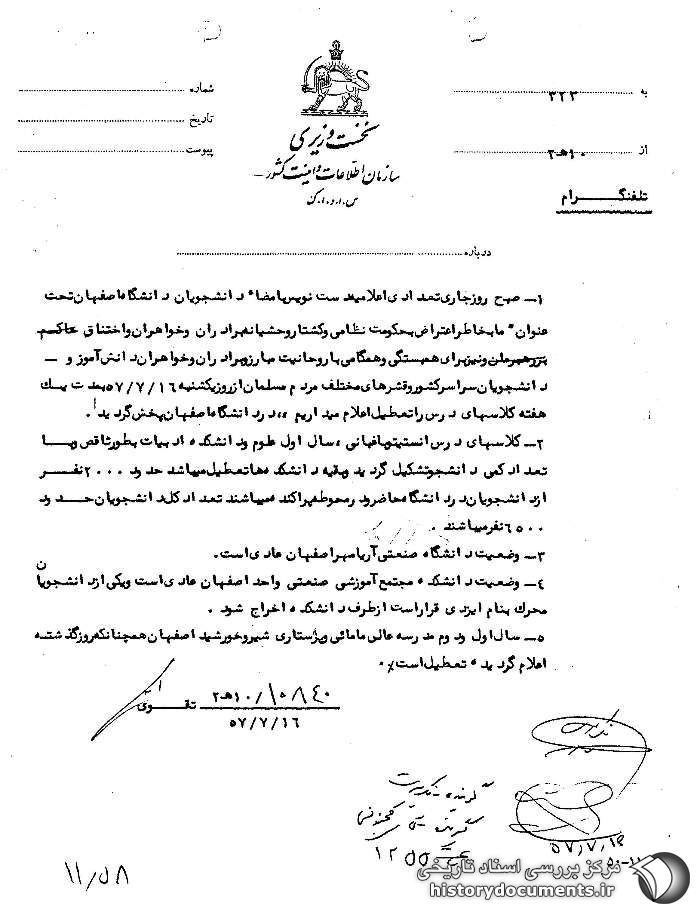 به ۳۲۳
شماره
تاریخ
از ۱۰هـ۲
پیوست
نخست وزیری
سازمان اطلاعات و امنیت کشور
س.ا.و.ا.ک
تلفنگرام
درباره
۱- صبح روزجاری تعدادی اعلامیه دست نویس بامضاء دانشجویان دانشگاه اصفهان تحت
عنوان " ما بخاطر اعتراض بحکومت نظامی و کشتار وحشیانه برادران وخواهران واختناق حاکم
بر میهن و نیز برای همبستگی وهمگامی با روحانیت مبارز وبرادران وخواهران دانش آموز و -
دانشجویان سراسر کشور وقشرهای مختلف مردم مسلمان از روز یکشنبه ۵۷/۷/۱۶ بمدت یک
هفته کلاسهای درس را تعطیل اعلام میداریم ،، در دانشگاه اصفهان پخش گردید .
۲- کلاسهای درس انستیتو ، سال اول علوم ودانشکده ادبیات بطور ناقص وبا
تعداد کمی دانشجو تشکیل گردید وبقیه دانشکده ها تعطیل میباشد حدود ۲۰۰۰ نفر
از دانشجویان در دانشگاه حاضر ودر محوطه پراکنده میباشند تعداد کل دانشجویان حدود
۶۵۰۰ نفر میباشند .
۳- وضعیت دانشگاه صنعتی آریامهر اصفهان عادی است.
۴- وضعیت دانشکده مجتمع آموزشی صنعتی واحد اصفهان عادی است ویکی از دانشجویان
محرک بنام ایزدی قرار است از طرف دانشکده اخراج شود .
۵- سال اول ودوم مدرسه عالی مامائی وپرستاری شیروخورشید اصفهان همچنانکه روز گذشته
اعلام گردیده تعطیل است .
تقوی ۱۰هـ۲/۱۰۸۴۰
۵۷/۷/۱۶
گوینده -
گیرنده -
۱۲۵۵
۵۷/۷/۱۶
۱۱/۵۸
مرکز بررسی اسناد تاریخی
historydocuments.ir